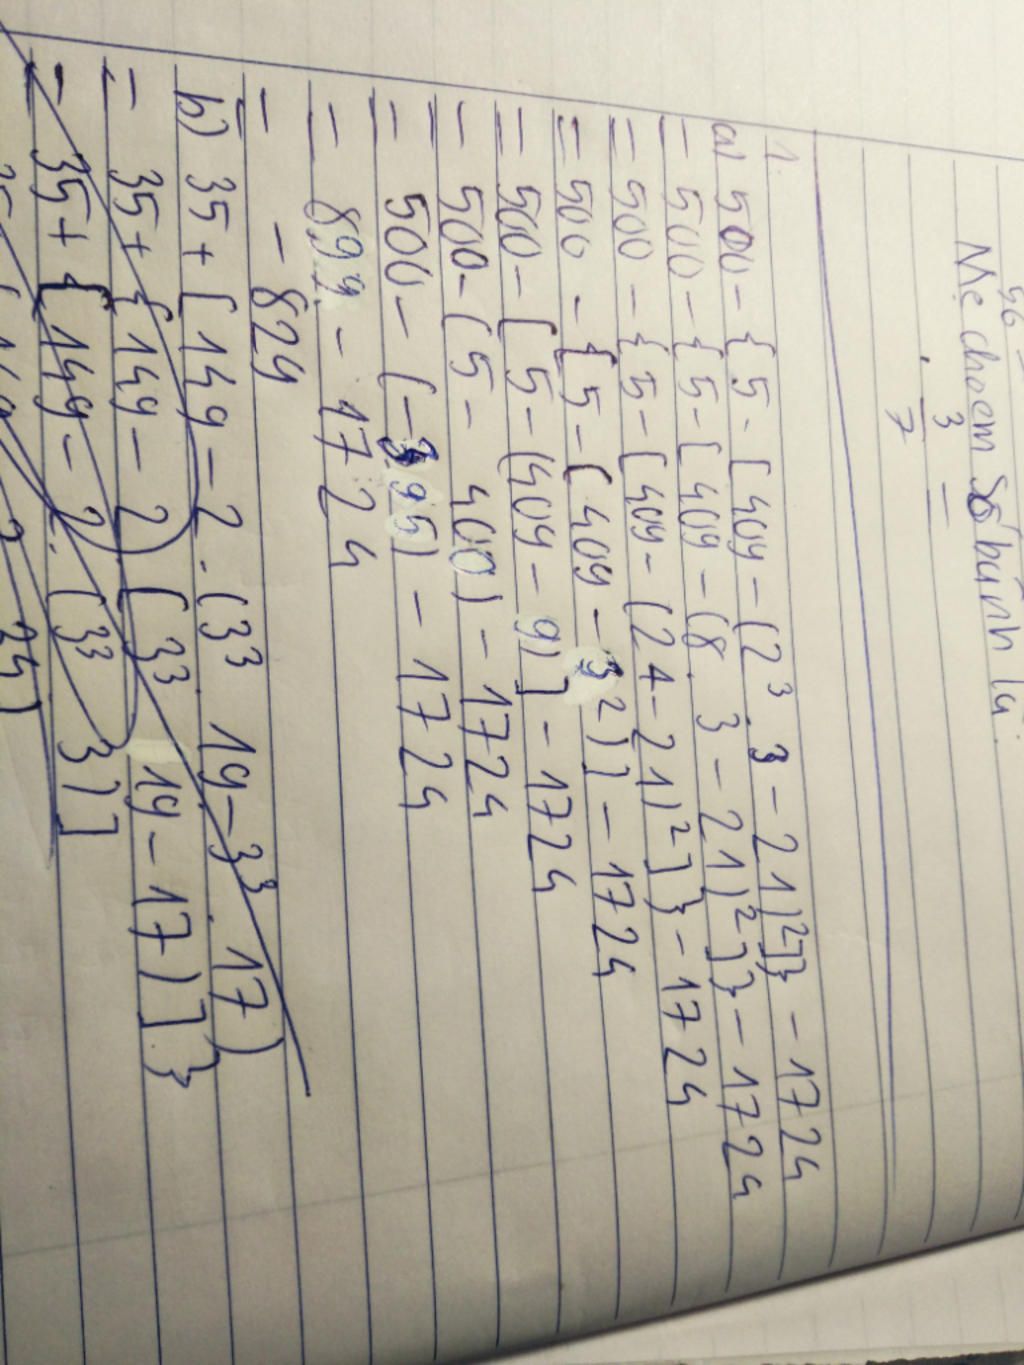 56
Mẹ cho em số bánh là:
. 3/7 =
1.
a) 500 - { 5 - [ 409 - ( 2³ . 3 - 21)²]} - 1724
= 500 - { 5 - [ 409 - ( 8 . 3 - 21)²]} - 1724
= 500 - { 5 - [ 409 - ( 24 - 21)²]} - 1724
= 500 - { 5 - ( 409 - 3²)] - 1724
= 500 - [ 5 - ( 409 - 9)] - 1724
= 500 - ( 5 - 400) - 1724
= 500 - ( - 395) - 1724
= 899 - 1724
= - 824
b) 35 + { 149 - 2 . ( 3³ . 19 - 3³ . 17)
= 35 + { 149 - 2 ) ( 3³ . 19 - 17 ) ] }
= 35 + { 149 - 2 . ( 3³ . 3)]